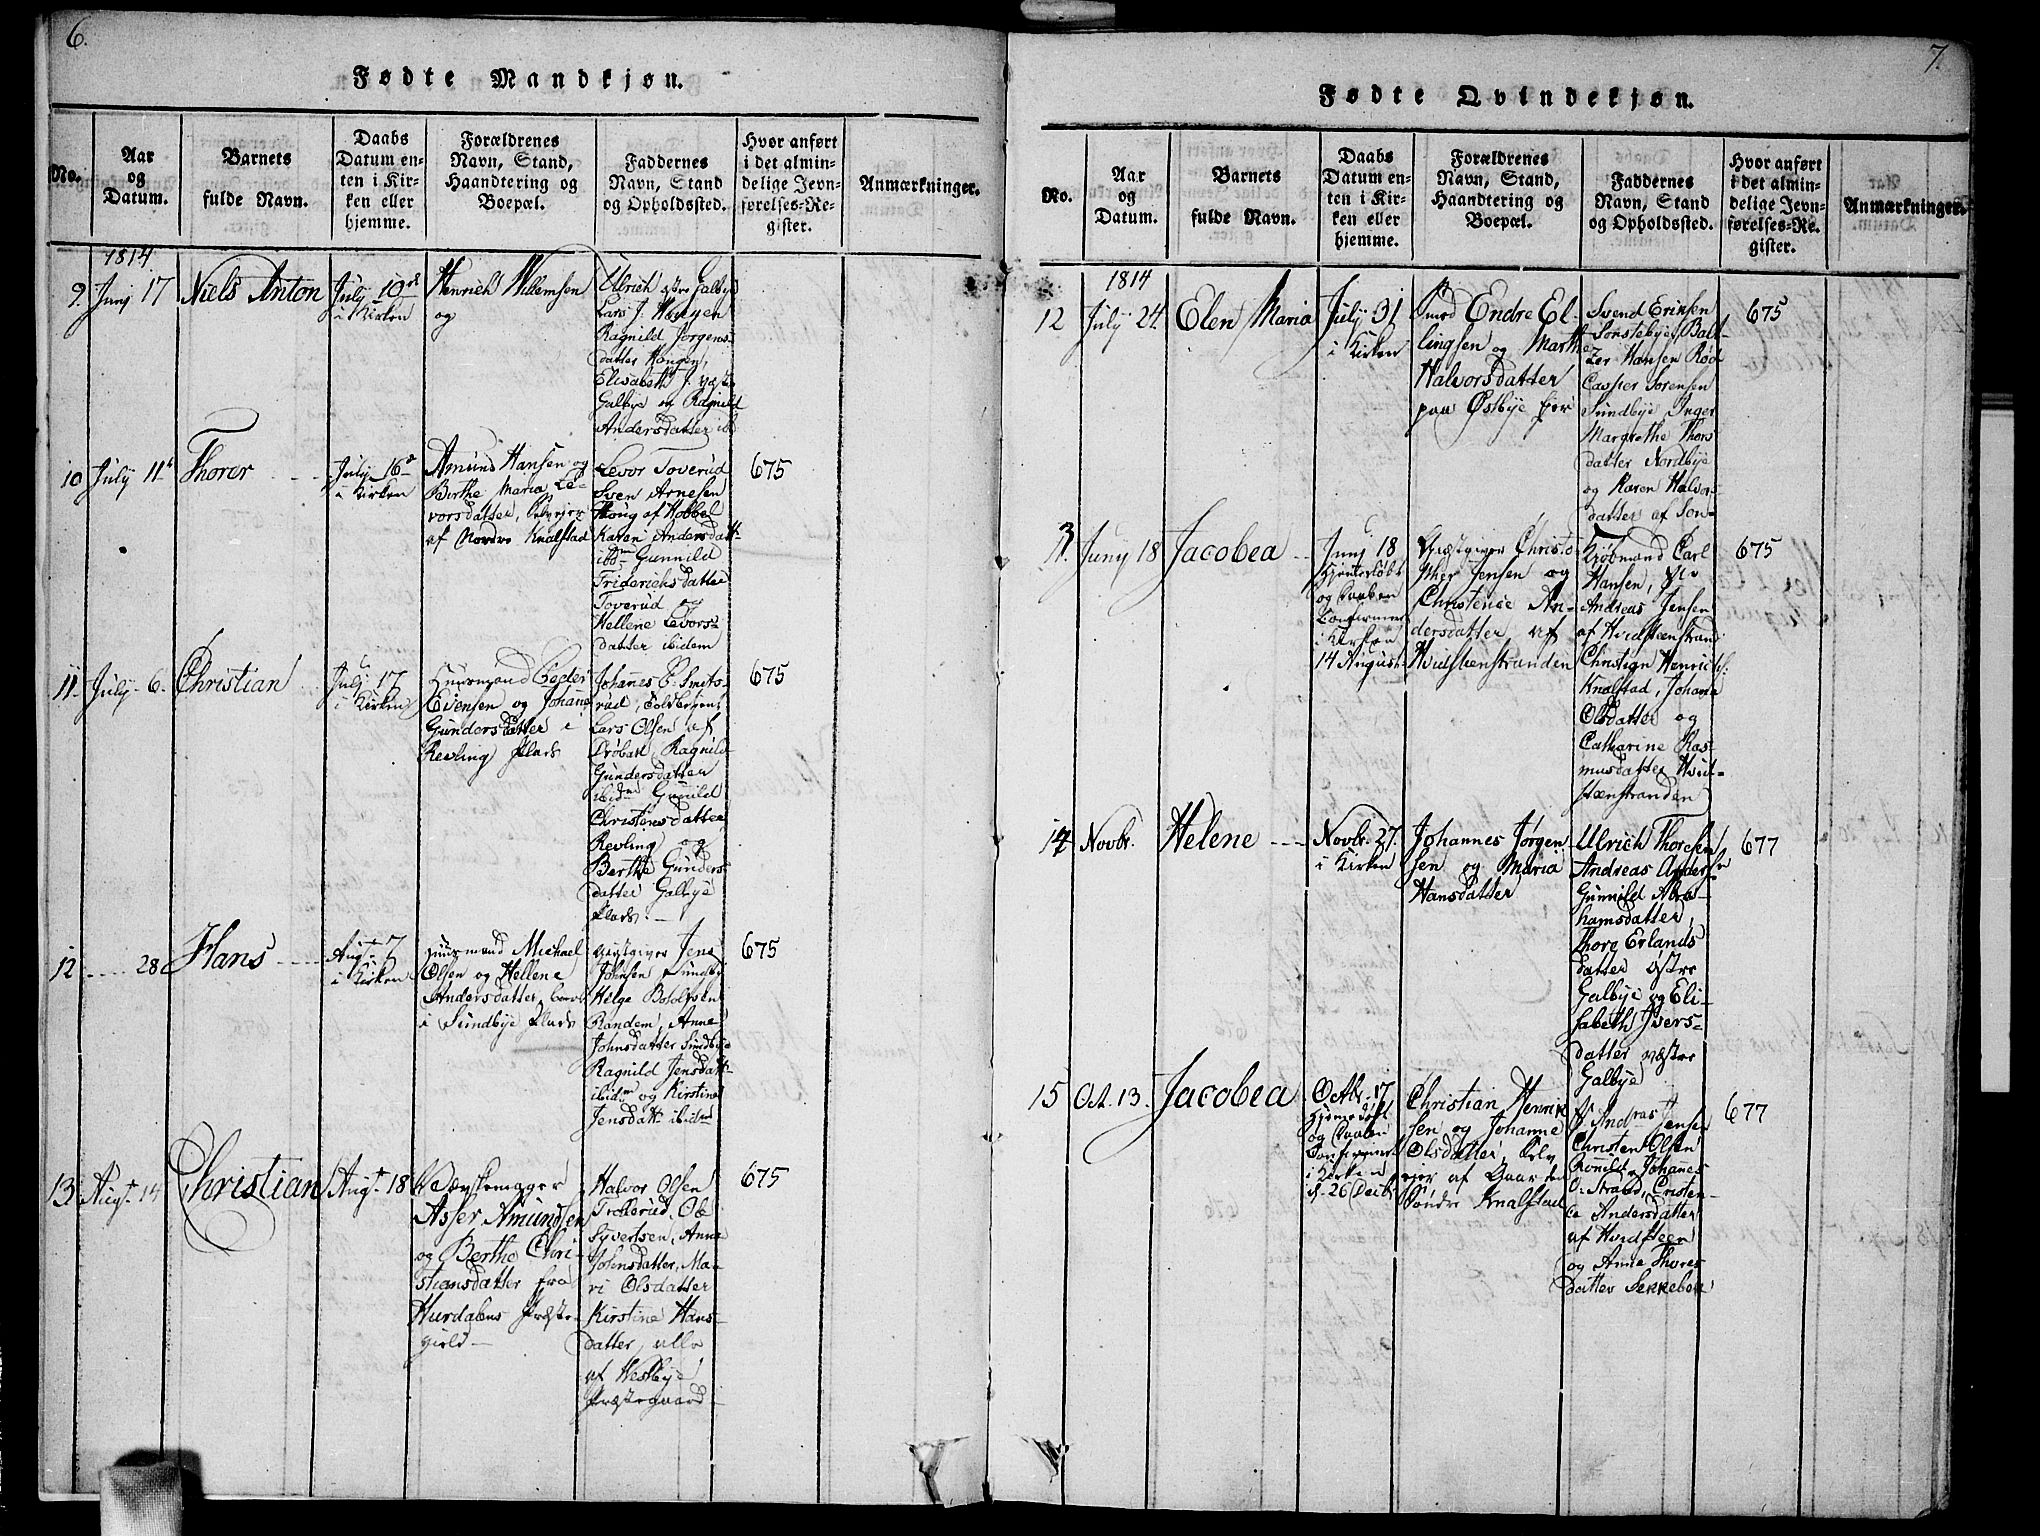 6.
Fødte Mandkjøn.
No.
Aar
og
Datum.
Barnets
fulde Navn.
Daabs
Datum en-
ten i Kir-
ken eller
hjemme.
Forældrenes
Navn, Stand,
Haandtering og
Boepæl.
Faddernes
Navn, Stand
og Opholdssted.
Hvor anført
i det almin-
delige Jevn-
førelses-Re-
gister.
Anmærkninger.
1814.
9.
Junj 17
Niels Anton
July 10de
i Kirken
Henrich Willemsen
og
Ulrich østre Galbye
Lars J. Wangen
Ragnild Jørgens-
datter Wangen,
Elisabeth J. væstre
Galbye og Ragnild
Andersdatter ibd
10
July 11t
Thorer
July 16de
i Kirken
Amund Hansen og
Berthe Maria Le-
vorsdatter,
af Nordre Knalstad
Levor Toverud
Sven Arnesen
Houg af Hobbel
Karen Andersdatt
ibdm Gunnild
Friderichsdatter
Toverud og
Hellene Levors-
datter ibidem
675
11.
July 6.
Christian
July 17
i Kirken
Huusmand Peder
Evensen og Johanne
Gundersdatter i
Revling Plads
Johannes E. Smits-
rud,
Lars Olsen af
Drøbak, Ragnild
Gundersdatter
ibidm Gunnild
Christensdatter
Revling og
Berthe Gunders-
datter Galbye
Plads.
675
12
28
Hans
Augt 7
i Kirken
Huusmand Michael
Olsen og Hellene
Andersdatter,
i Sundbye Plads
Jens
Johnsen Sundbye
Helge Bottolfsen
Randem, Anne
Johnsdatter Sundbye
Ragnild Jensdatt
ibidm og Kirstine
Jensdatt ibidm
675
13.
Augt. 14
Christian
Augt. 18
Asser Amundsen
og Berthe Chri-
stiansdatter fra
Hurdalens Præste-
gield
Halvor Olsen
Froterud, Ole
Syvertsen, Anna
Johensdatter, Ma-
ri Olsdatter
Kirstine Hans-
datter, alle
af Westbye
Præstegaard
675
7.
Fødte Qvindekjøn.
No.
Aar
og
Datum.
Barnets
fulde Navn.
Daabs
Datum en-
ten i Kir-
ken eller
hjemme.
Forældrenes
Navn, Stand,
Haandtering og
Boepæl.
Faddernes
Navn, Stand
og Opholdssted.
Hvor anført
i det almin-
delige Jevn-
førelses-Re-
gister.
Anmærkninger.
1814
12
July 24.
Elen Maria
July 31
i Kirken
Smed Endre El-
lingsen og Marthe
Halvorsdatter
paa Østbye Eier
Svend Eriksen
Sønstebye, Balt-
zer Hansen Rød
Casper Sørensen
Sundbye Inger
Margrethe Thors
datter Nordbye
og Karen Halvors-
datter af Søn-
675
Junj 18
Jacobea
Junj 18
Hjemmedøbt
og Daaben
Confirmeret
i Kirken
14 August
Giæstgiver Christo
pher Jensen og
Christense An-
dersdatter af
Hvidsteenstranden
Kjøbmand Carl
Hansen,
Andreas Jensen
af Hvidsteenstrand
Christian Henrichs.
Knalstad, Johanna
Olsdatter og
Catharine Ras-
musdatter Hvid-
steenstranden
675
14
Novbr.
Helene
Novbr. 27.
i Kirken
Johannes Jørgen
sen og Maria
Hansdatter
Ulrich Thorersen
Andreas Anders-
Gunnild Abra-
hamsdatter,
Thore Erlands
datter østre
Galbye og Eli-
sabeth Ivers-
datter væstre
Galbye
677
15
Oct. 13.
Jacobea
Octbr. 17
Hjemedøbt
og Daaben
Confirmeret
i Kirken
d. 26 Decbr
Christian Henrik
sen og Johanne
Olsdatter, Selv
eier af Gaarden
Søndre Knalstad
Andreas Jensen
Christen Olsen
Johannes
O. Strand, Cristen-
ce Andersdatter
af Hvidsteen
og Anne Thores
datter Sekkebek
677